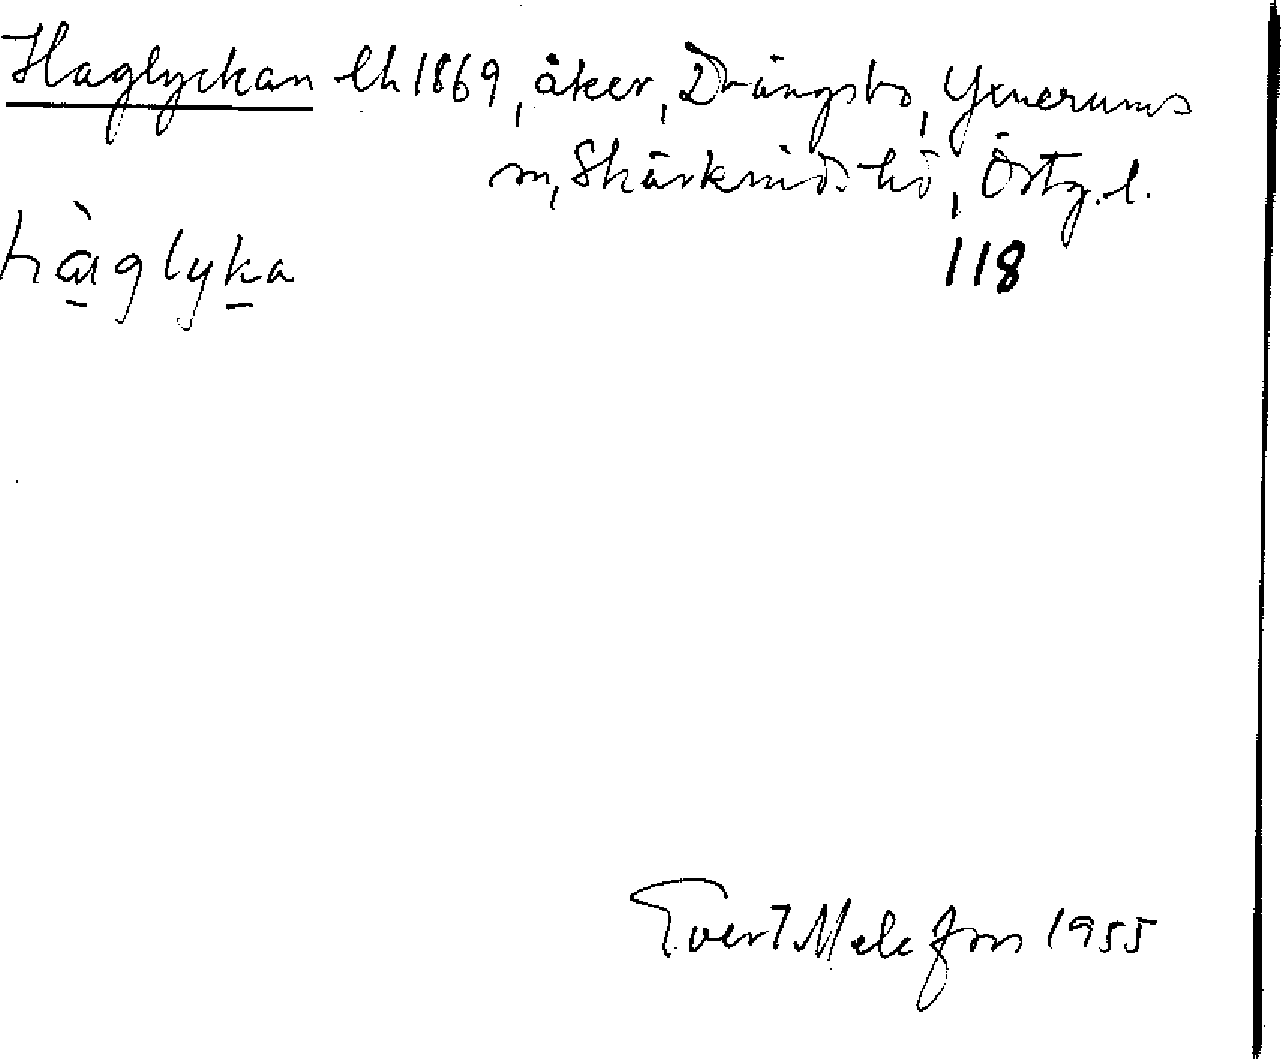 Haglyckan lh 1869, åker, Drängsbo, Yxnerums
sn, Skärkinds hd, Östg. l.
hàglyka
118
Evert Melefors 1955